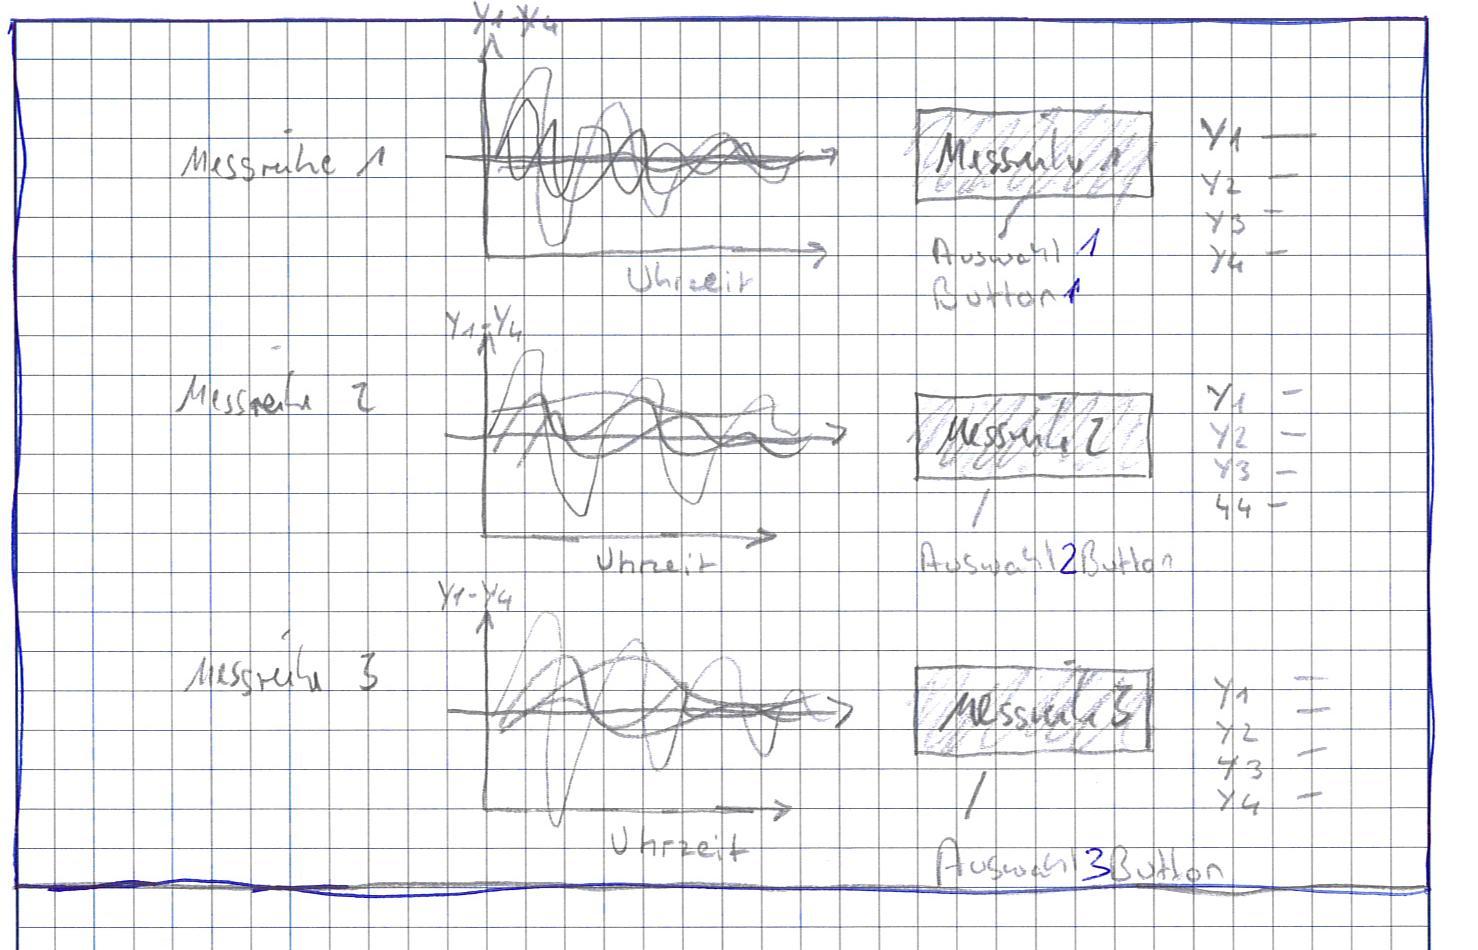 Y1-Y4
Messreihe 1
Messreihe 1
Y1
Y2
Y3
Y4
Auswahl 1
Button 1
Uhrzeit
Y1-Y4
Messreihe 2
Messreihe 2
Y1
Y2
Y3
Y4
Uhrzeit
Auswahl2Button
Y1-Y4
Messreihe 3
Messreihe 3
Y1
Y2
Y3
Y4
Uhrzeit
Auswahl3Button